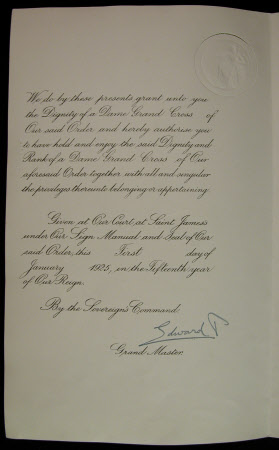 We do by these presents grant unto you
the Dignity of a Dame Grand Cross of
Our said Order and hereby authorise you
to have hold and enjoy the said Dignity and
Rank of a Dame Grand Cross of Our
aforesaid Order together with all and singular
the privileges thereunto belonging or appertaining.
Given at Our Court at Saint James's
under Our Sign Manual and Seal of Our
said Order, this First day of
January 1925, in the Fifteenth year
of Our Reign.
By the Sovereign's Command.
Edward P
Grand Master.